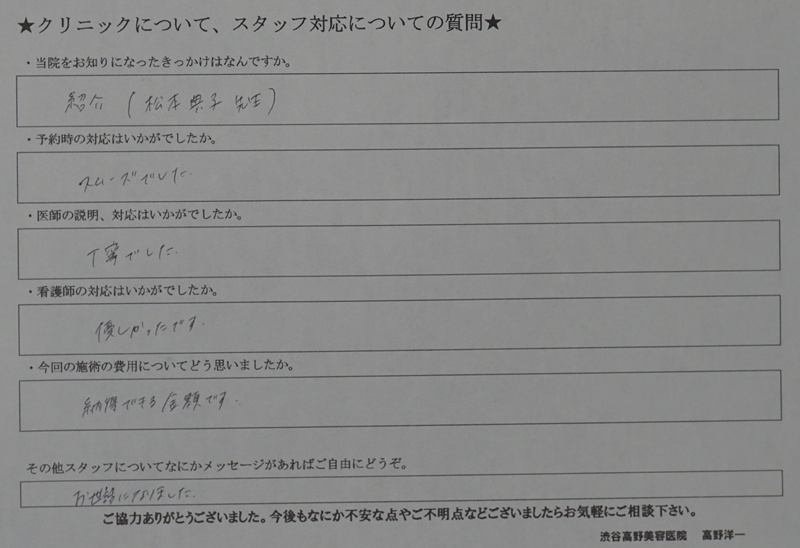 ★クリニックについて、スタッフ対応についての質問★
・当院をお知りになったきっかけはなんですか。
紹介(松本典子先生)
・予約時の対応はいかがでしたか。
スムーズでした.
・医師の説明、対応はいかがでしたか。
丁寧でした.
・看護師の対応はいかがでしたか。
優しかったです.
・今回の施術の費用についてどう思いましたか。
納得できる金額です.
その他スタッフについてなにかメッセージがあればご自由にどうぞ。
お世話になりました.
ご協力ありがとうございました。今後もなにか不安な点やご不明点などございましたらお気軽にご相談下さい。
渋谷高野美容医院 高野洋一